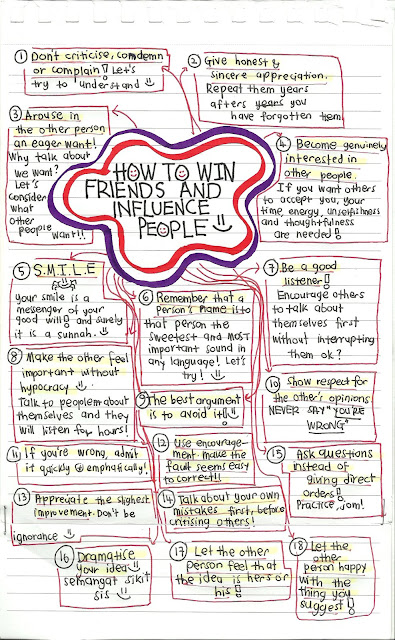 HOW TO WIN
FRIENDS AND
INFLUENCE
PEOPLE
① Don't criticise, condemn
or complain! Let's
try to understand
② Give honest &
sincere appreciation.
Repeat them years
afters years you
have forgotten them.
③ Arouse in
the other person
an eager want!
Why talk about
we want?
Let's
consider
what
other
people
want!!
④ Become genuinely
interested in
other people.
If you want others
to accept you, your
time, energy, unselfishness
and thoughtfulness
are needed!
⑤ S.M.I.L.E
your smile is a
messenger of your
good will! and surely
it is a sunnah.
⑥ Remember that a
person's name is to
that person the
sweetest and MOST
important sound in
any language! Let's
try!
⑦ Be a good
listener!
Encourage others
to talk about
themselves first
without interrupting
them ok?
⑧ Make the other feel
important without
hypocracy
Talk to peoplem about
themselves and they
will listen for hours!
⑨ The best argument
is to avoid it!
⑩ Show respect for
the other's opinions
NEVER SAY "YOU'RE
WRONG"
⑪ If you're wrong, admit
it quickly & emphatically!
⑫ Use encourage-
ment. make the
fault seems easy
to correct!!
⑬ Appreciate the slighest
improvement. Don't be
ignorance
⑭ Talk about your own
mistakes first, before
critising others!
⑮ Ask questions
instead of
giving direct
orders!
Practice, jom!
⑯ Dramatise
your idea
semangat sikit
sis
⑰ Let the other
person feel that
the idea is hers or
his!
⑱ Let the
other
person happy
with the
thing you
suggest!